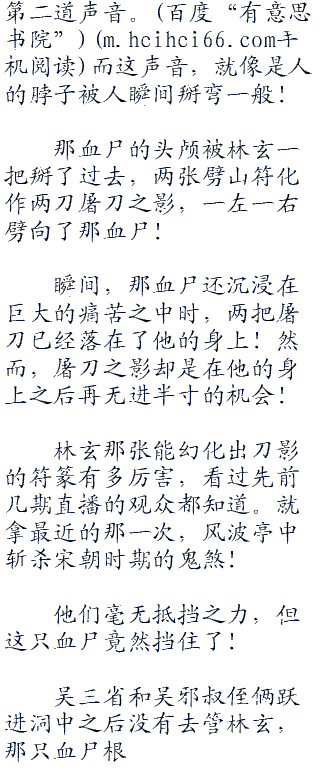 第二道声音。(百度“有意思
书院”)(m.hcihci66.com手
机阅读)而这声音，就像是人
的脖子被人瞬间掰弯一般！
那血尸的头颅被林玄一
把掰了过去，两张劈山符化
作两刀屠刀之影，一左一右
劈向了那血尸！
瞬间，那血尸还沉浸在
巨大的痛苦之中时，两把屠
刀已经落在了他的身上！然
而，屠刀之影却是在他的身
上之后再无进半寸的机会！
林玄那张能幻化出刀影
的符篆有多厉害，看过先前
几期直播的观众都知道。就
拿最近的那一次，风波亭中
斩杀宋朝时期的鬼煞！
他们毫无抵挡之力，但
这只血尸竟然挡住了！
吴三省和吴邪叔侄俩跃
进洞中之后没有去管林玄，
那只血尸根